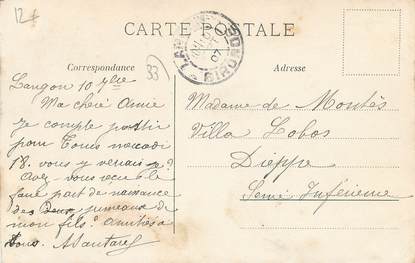 12+
CARTE POSTALE
Correspondance
Adresse
33
07
Langon 10 7bre
Ma chère Amie
Je compte partir
pour Tours mercredi
18. vous y verrais-je?
Avez vous reçu le
faire part de naissance
des Deux jumeaux de
mon fils? Amitiés à
tous.
Madame de Montès
Villa Lobos
Dieppe
Seine Inférieure